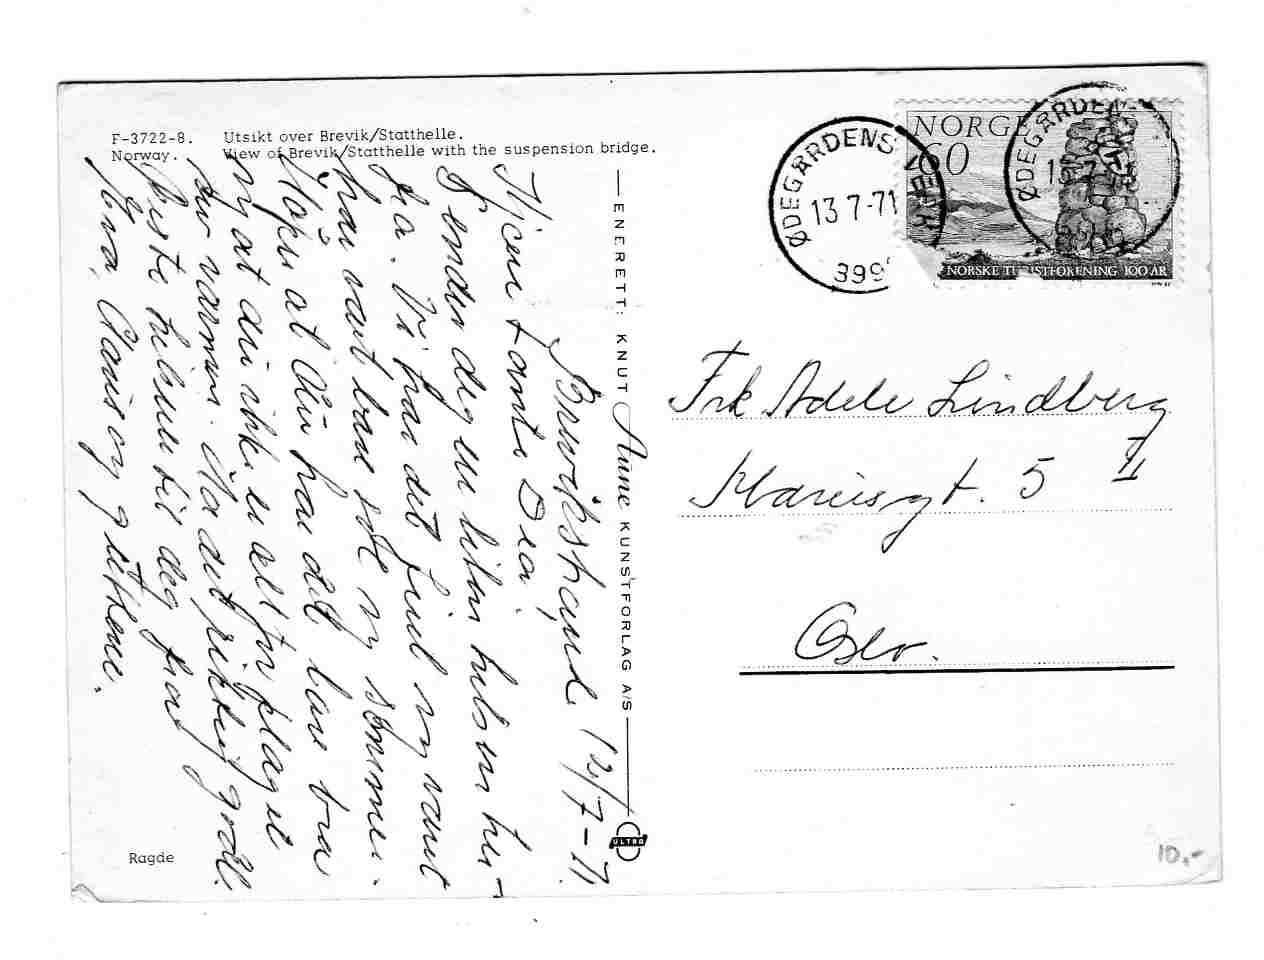 F-3722-8. Utsikt over Brevik/Statthelle.
Norway. View of Brevik/Statthelle with the suspension bridge.
12/7-71
Kjære tante Dea.
Sender deg en liten hilsen her-
fra. Vi har det fint og vant
har vært bare sol og sommer.
Håper at du har det bare bra
og at du ikke er alt for plaget
av varmen. Ha det riktig godt.
Beste hilsen til deg fra
Eva, Claus og guttene.
ENERETT: KNUT Aune KUNSTFORLAG A/S
ULTRA
Ragde
NORGE
60
NORSKE TURISTFORENING 100 ÅR
ØDEGÅRDENS VERK
13 7-71
399
ØDEGÅRDEN
Frk Adele Lindberg
Mariusgt. 5 II
Oslo.
10,-